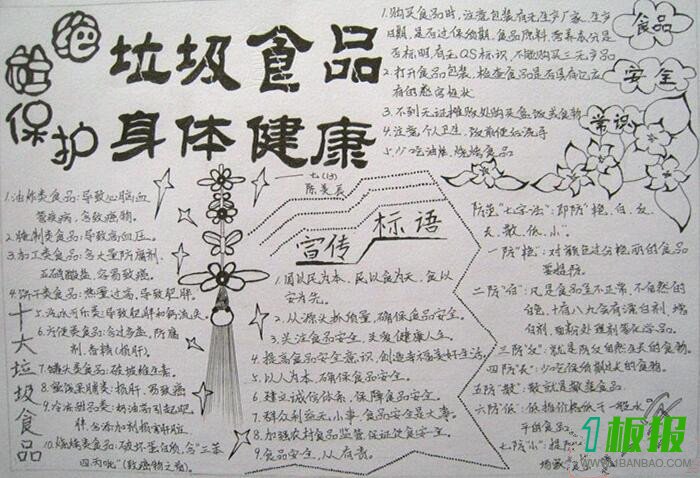 拒绝
垃圾食品
保护
身体健康
七(13)
1.购买食品时,注意包装有无生产厂家、生产
日期,是否过保质期,食品原料,营养成分是
否标明,有无QS标识,不能购买三无产品
2.打开食品包装,检查食品是否具有它应
有的感官性状
3.不到无证摊贩处购买盒饭或食物
4.注意个人卫生,饭前便后洗手
5.少吃油炸、烧烤食品
食品
安全
常识
十大垃圾食品
1.油炸类食品:导致心脑血
管疾病,含致癌物。
2.腌制类食品:导致高血压。
3.加工类食品:含大量防腐剂、
亚硝酸盐,容易致癌。
4.饼干类食品:热量过高,导致肥胖。
5.汽水可乐类:导致肥胖和钙流失。
6.方便类食品:含过多盐,防腐
剂,香精(损肝)。
7.罐头类食品:破坏维生素。
8.蜜饯果脯类:损肝,易致癌
9.冷冻甜品类:奶油高引起肥
胖,含添加剂损害肝脏
10.烧烤类食品:破坏蛋白质,含“三苯
四丙吡”(致癌物之首)。
宣传标语
1.国以民为本,民以食为天,食以
安为先。
2.从源头抓质量,确保食品安全。
3.关注食品安全,关爱健康人生。
4.提高食品安全意识,创造幸福美好生活。
5.以人为本,确保食品安全。
6.建立诚信体系,保障食品安全。
7.群众利益无小事,食品安全是大事。
8.加强农村食品监管,保证饮食安全。
9.食品安全,从有责。
防范“七字法”:即防“艳、白、反、
长、散、低、小”。
一防“艳”:对颜色过分艳丽的食品
要提防。
二防“白”:凡是食品呈不正常、不自然的
白色,十有八九含有漂白剂、增
白剂、面粉处理剂等化学品。
三防“反”:就是防反自然生长的食物。
四防“长”:少吃保质期过长的食物。
五防“散”:散就是散装食品。
六防“低”:低指价格低于一般水
平的食品。
七防“小”:提防
1板报
WWW.1BANBAO.COM